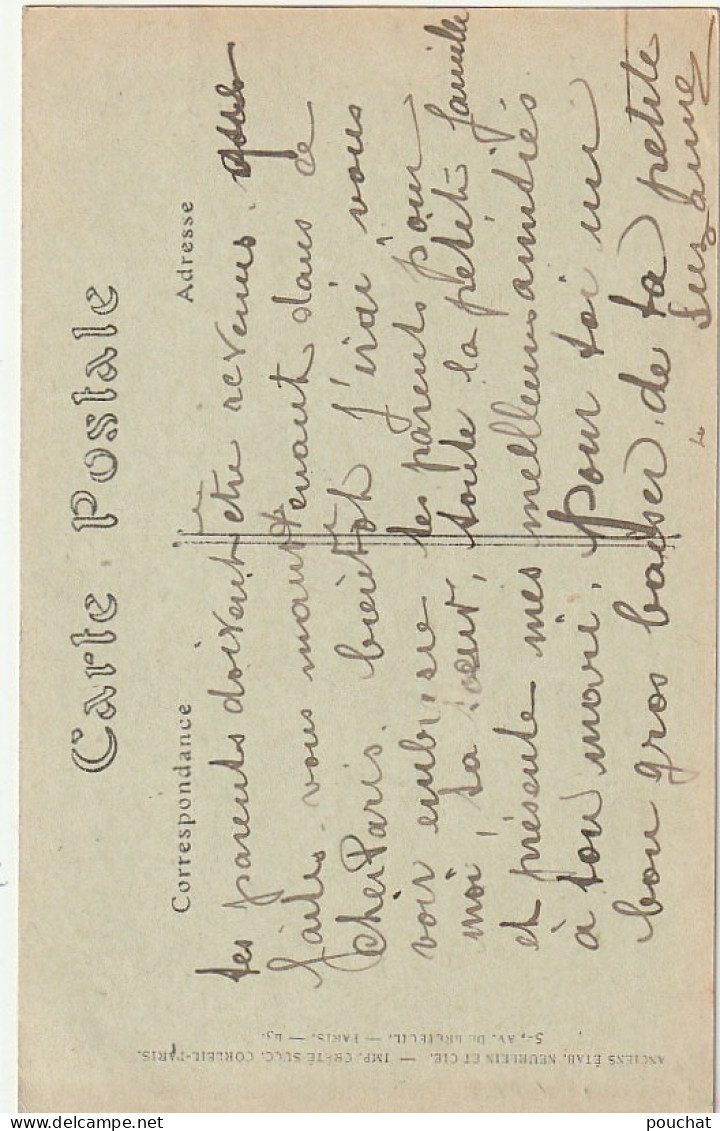 Carte Postale
Correspondance
Adresse
tes parents doivent être revenus. que
faites-vous maintenant dans ce
cher Paris. bientôt j'irai vous
voir embrasse tes parents pour
moi, ta soeur, toute la petite famille
et présente mes meilleurs amitiés
à ton mari. Pour toi un
bon gros baiser de ta petite
Suzanne
ANCIENS ÉTAB. NEURDEIN ET CIE. — IMP. CRÉTÉ SUCC. CORBEIL-PARIS.
52, AV. DE BRETEUIL. — PARIS.
pouchat